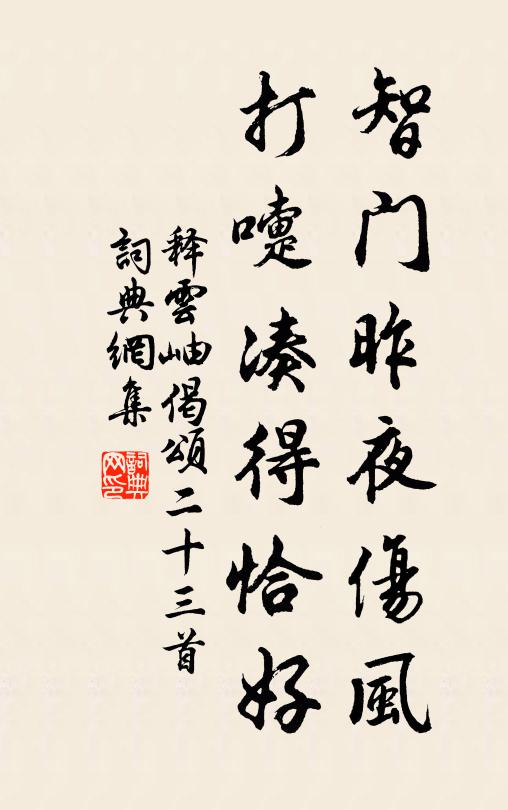 智門昨夜傷風
打嚏湊得恰好
釋雲岫偈頌二十三首
詞典網集
詞典網印